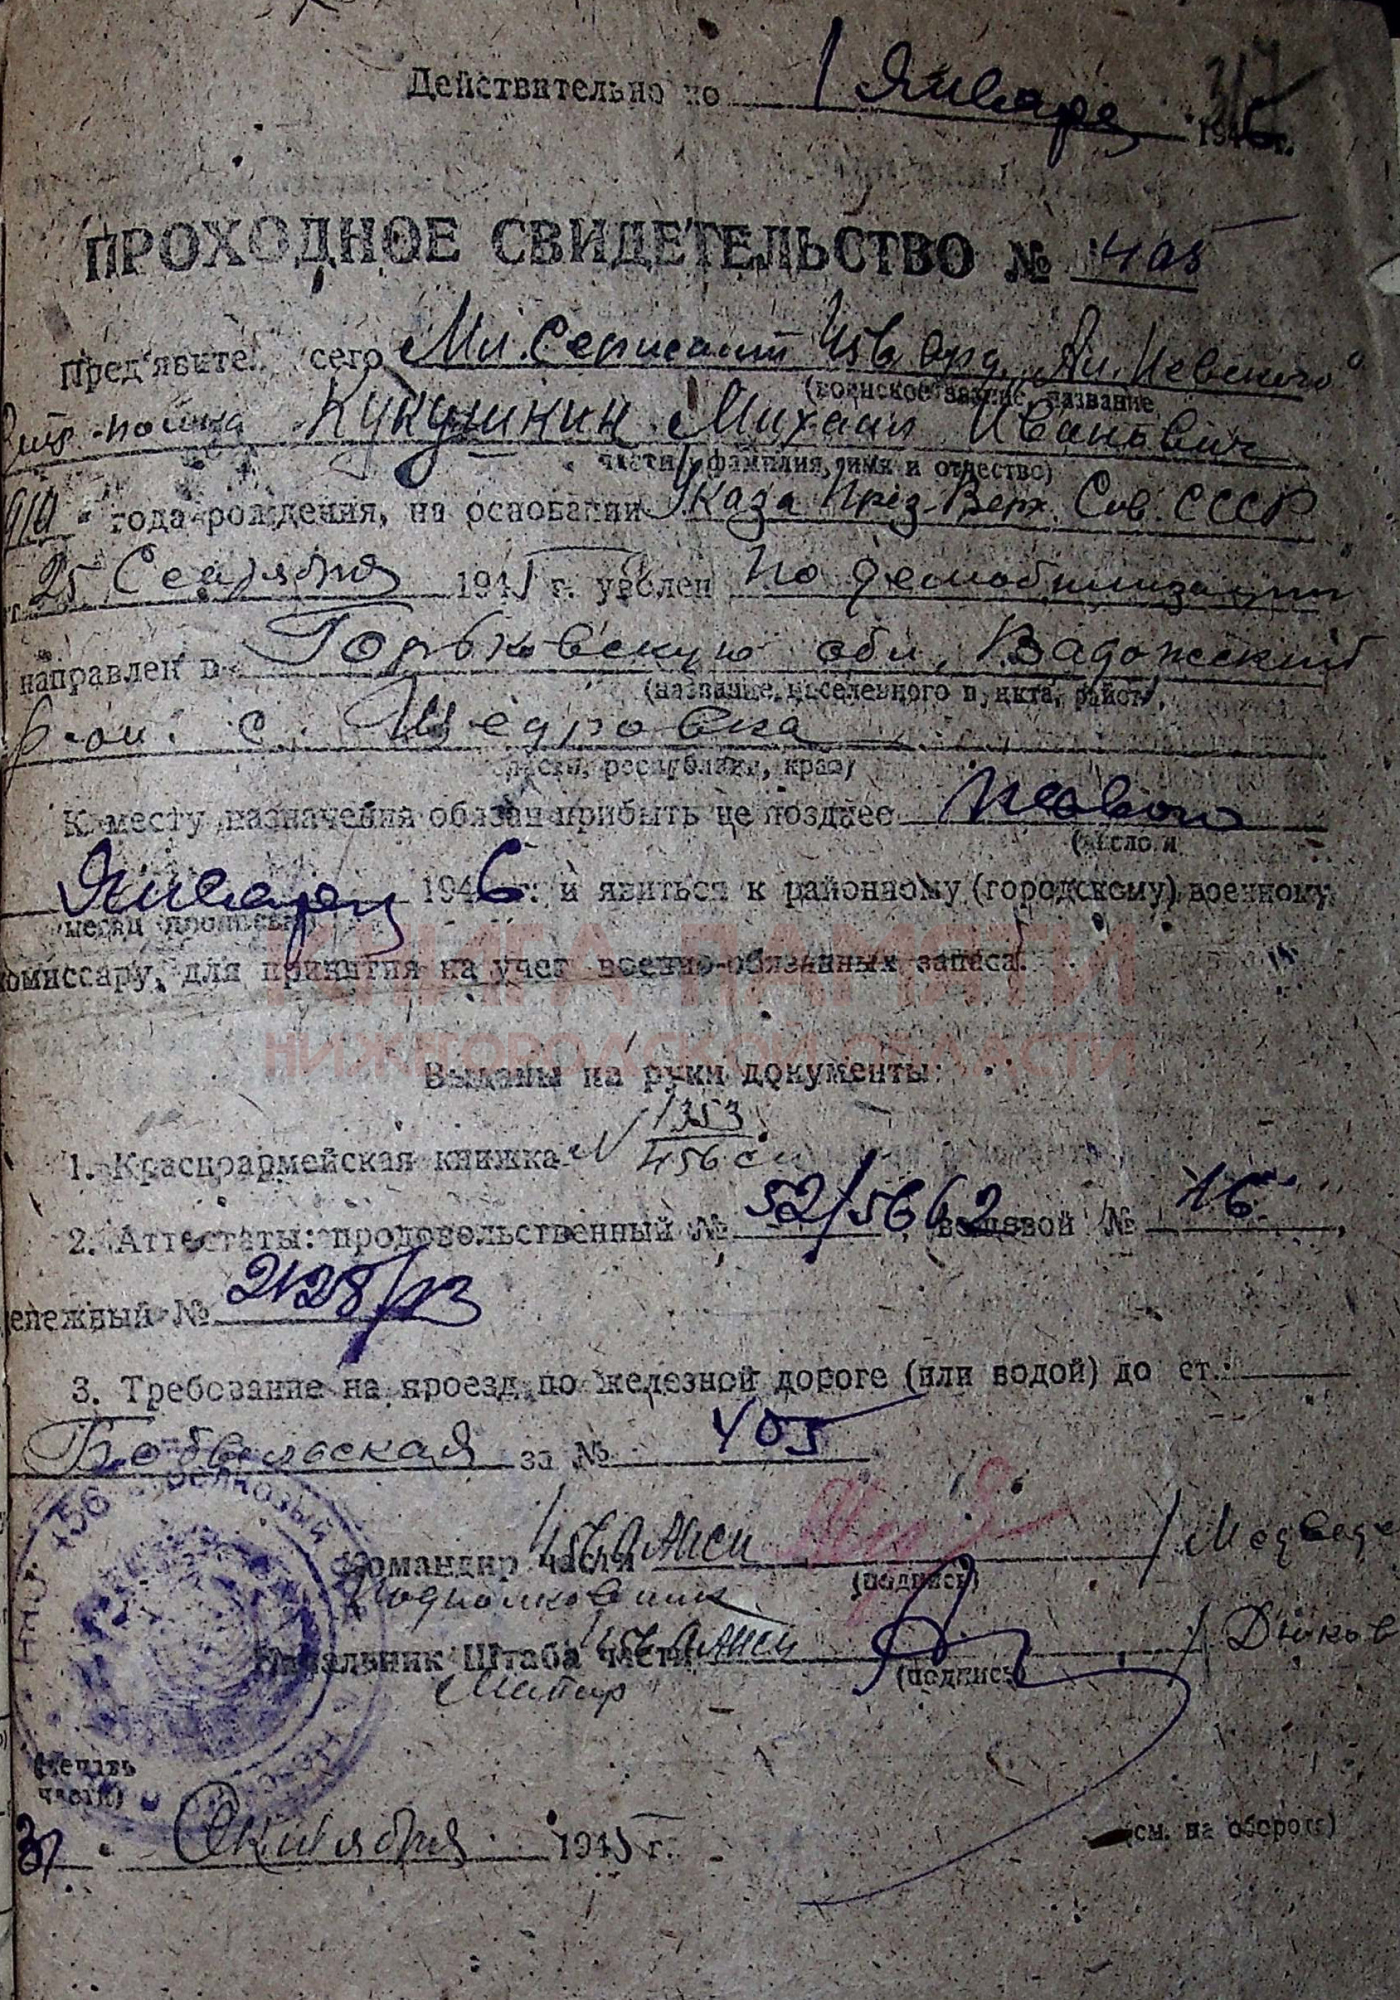 317
Действительно по 1 Января 1946 г.
ПРОХОДНОЕ СВИДЕТЕЛЬСТВО № 405
Пред'явите сего Мл. Сержант 456 орд. „Ал. Невского"
(воинское звание, название
Кукушкин Михаил Иванович
части, фамилия, имя и отчество)
1910 года рождения, на основании Указа През. Верх. Сов. СССР
25 Сентября 1945 г. уволен по демобилизации
направлен в Горьковскую обл, Вадожский
(название населенного пункта, района,
р-он. с. Щедровка
области, республики, края)
К месту назначения обязан прибыть не позднее
(число и
Января 1946 г. и явиться к районному (городскому) военному
месяц прописью)
комиссару, для принятия на учет военно-обязанных запаса.
КНИГА ПАМЯТИ
НИЖЕГОРОДСКОЙ ОБЛАСТИ
Выданы на руки документы:
1. Красноармейская книжка N 1353
456 сп
2. Аттестаты: продовольственный № 52/5662 вещевой № 16,
енежный № 2128/13
3. Требование на проезд по железной дороге (или водой) до ст.:
Бобвельская за № 405
Командир части 456 /Медведе
(подпись)
Подполковник
Начальник Штаба части 456 /Дюков
(подпись)
Майор
456
(печать
части)
31 Октября 1945 г.
(см. на обороте)